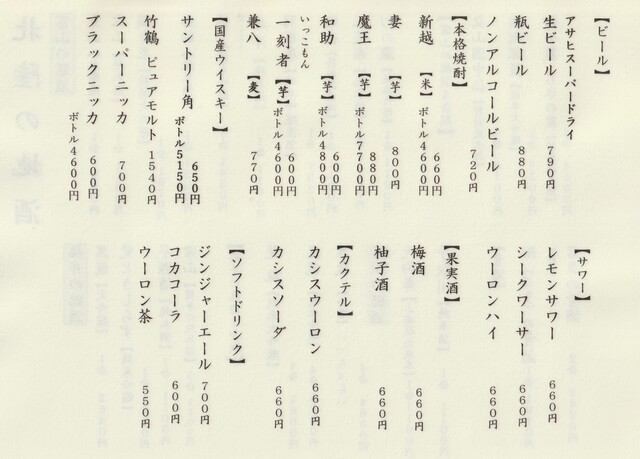 【ビール】
アサヒスーパードライ
生ビール 790円
瓶ビール 880円
ノンアルコールビール 720円
【本格焼酎】
新越 【米】 660円
ボトル4600円
妻 【芋】 800円
魔王 【芋】 880円
ボトル7700円
和助 【芋】 600円
ボトル4800円
いっこもん
一刻者 【芋】 600円
ボトル4600円
兼八 【麦】 770円
【国産ウイスキー】
サントリー角 650円
ボトル5150円
竹鶴 ピュアモルト 1540円
スーパーニッカ 700円
ブラックニッカ 600円
ボトル4600円
【サワー】
レモンサワー 660円
シークワーサー 660円
ウーロンハイ 660円
【果実酒】
梅酒 660円
柚子酒 660円
【カクテル】
カシスウーロン 660円
カシスソーダ 660円
【ソフトドリンク】
ジンジャーエール 700円
コカコーラ 600円
ウーロン茶 550円